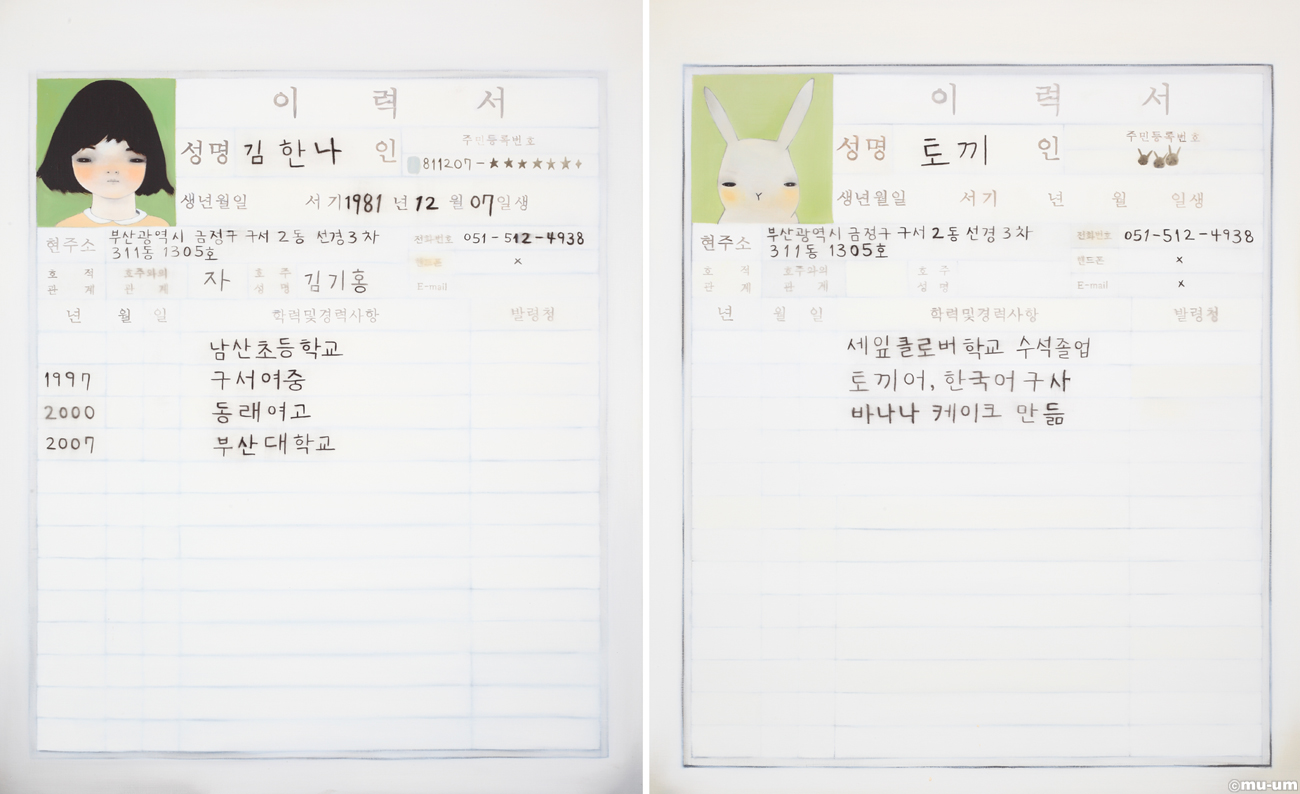 이 력 서
성명 김한나 인
주민등록번호
811207-★★★★★★★
생년월일 서기 1981 년 12 월 07 일생
현주소 부산광역시 금정구 구서 2동 선경 3차
311동 1305호
전화번호 051-512-4938
핸드폰 x
E-mail
호적관계 호주와의관계 자 호주성명 김기홍
년 월 일 학력및경력사항 발령청
남산초등학교
1997 구서여중
2000 동래여고
2007 부산대학교
이 력 서
성명 토끼 인
주민등록번호
생년월일 서기 년 월 일생
현주소 부산광역시 금정구 구서 2동 선경 3차
311동 1305호
전화번호 051-512-4938
핸드폰 x
E-mail x
호적관계 호주와의관계 호주성명
년 월 일 학력및경력사항 발령청
세잎클로버학교 수석졸업
토끼어, 한국어 구사
바나나 케이크 만듦
©mu-um